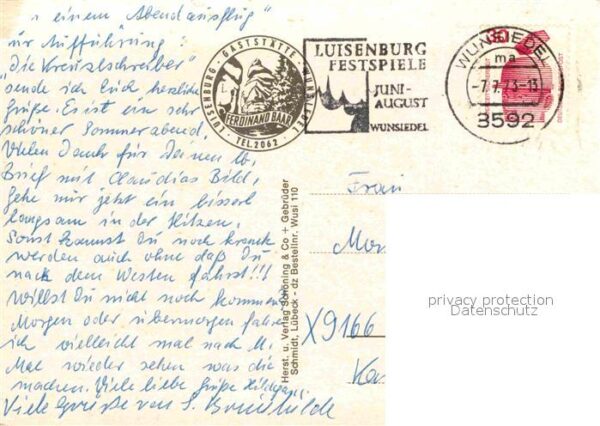 einem Abendausflug"
zur Aufführung:
"Die Kreuzelschreiber"
sende ich Euch herzliche
Grüße. Es ist ein sehr
schöner Sommerabend,
Vielen Dank für Deinen lb.
Brief mit Claudias Bild,
Gehe mir jetzt ein bisserl
langsam in der Hitze.
Sonst kannst Du noch krank
werden auch ohne daß Du
nach dem Westen fährst!!!
Willst Du nicht noch kommen
Morgen oder übermorgen fahre
ich vielleicht mal nach M.
Mal wieder sehen was die
machen. Viele liebe Grüße
Viele Grüße von S. Brunhilde
LUISENBURG · GASTSTÄTTE · WUNSIEDEL
FERDINAND BAAR
· TEL. 2062 ·
LUISENBURG
FESTSPIELE
JUNI-
AUGUST
WUNSIEDEL
WUNSIEDEL
ma
-7.7.73-13
3592
30
Herst. u. Verlag Schöning & Co + Gebrüder
Schmidt, Lübeck - dz Bestellnr. Wusi 110
Frau
X9166
privacy protection
Datenschutz